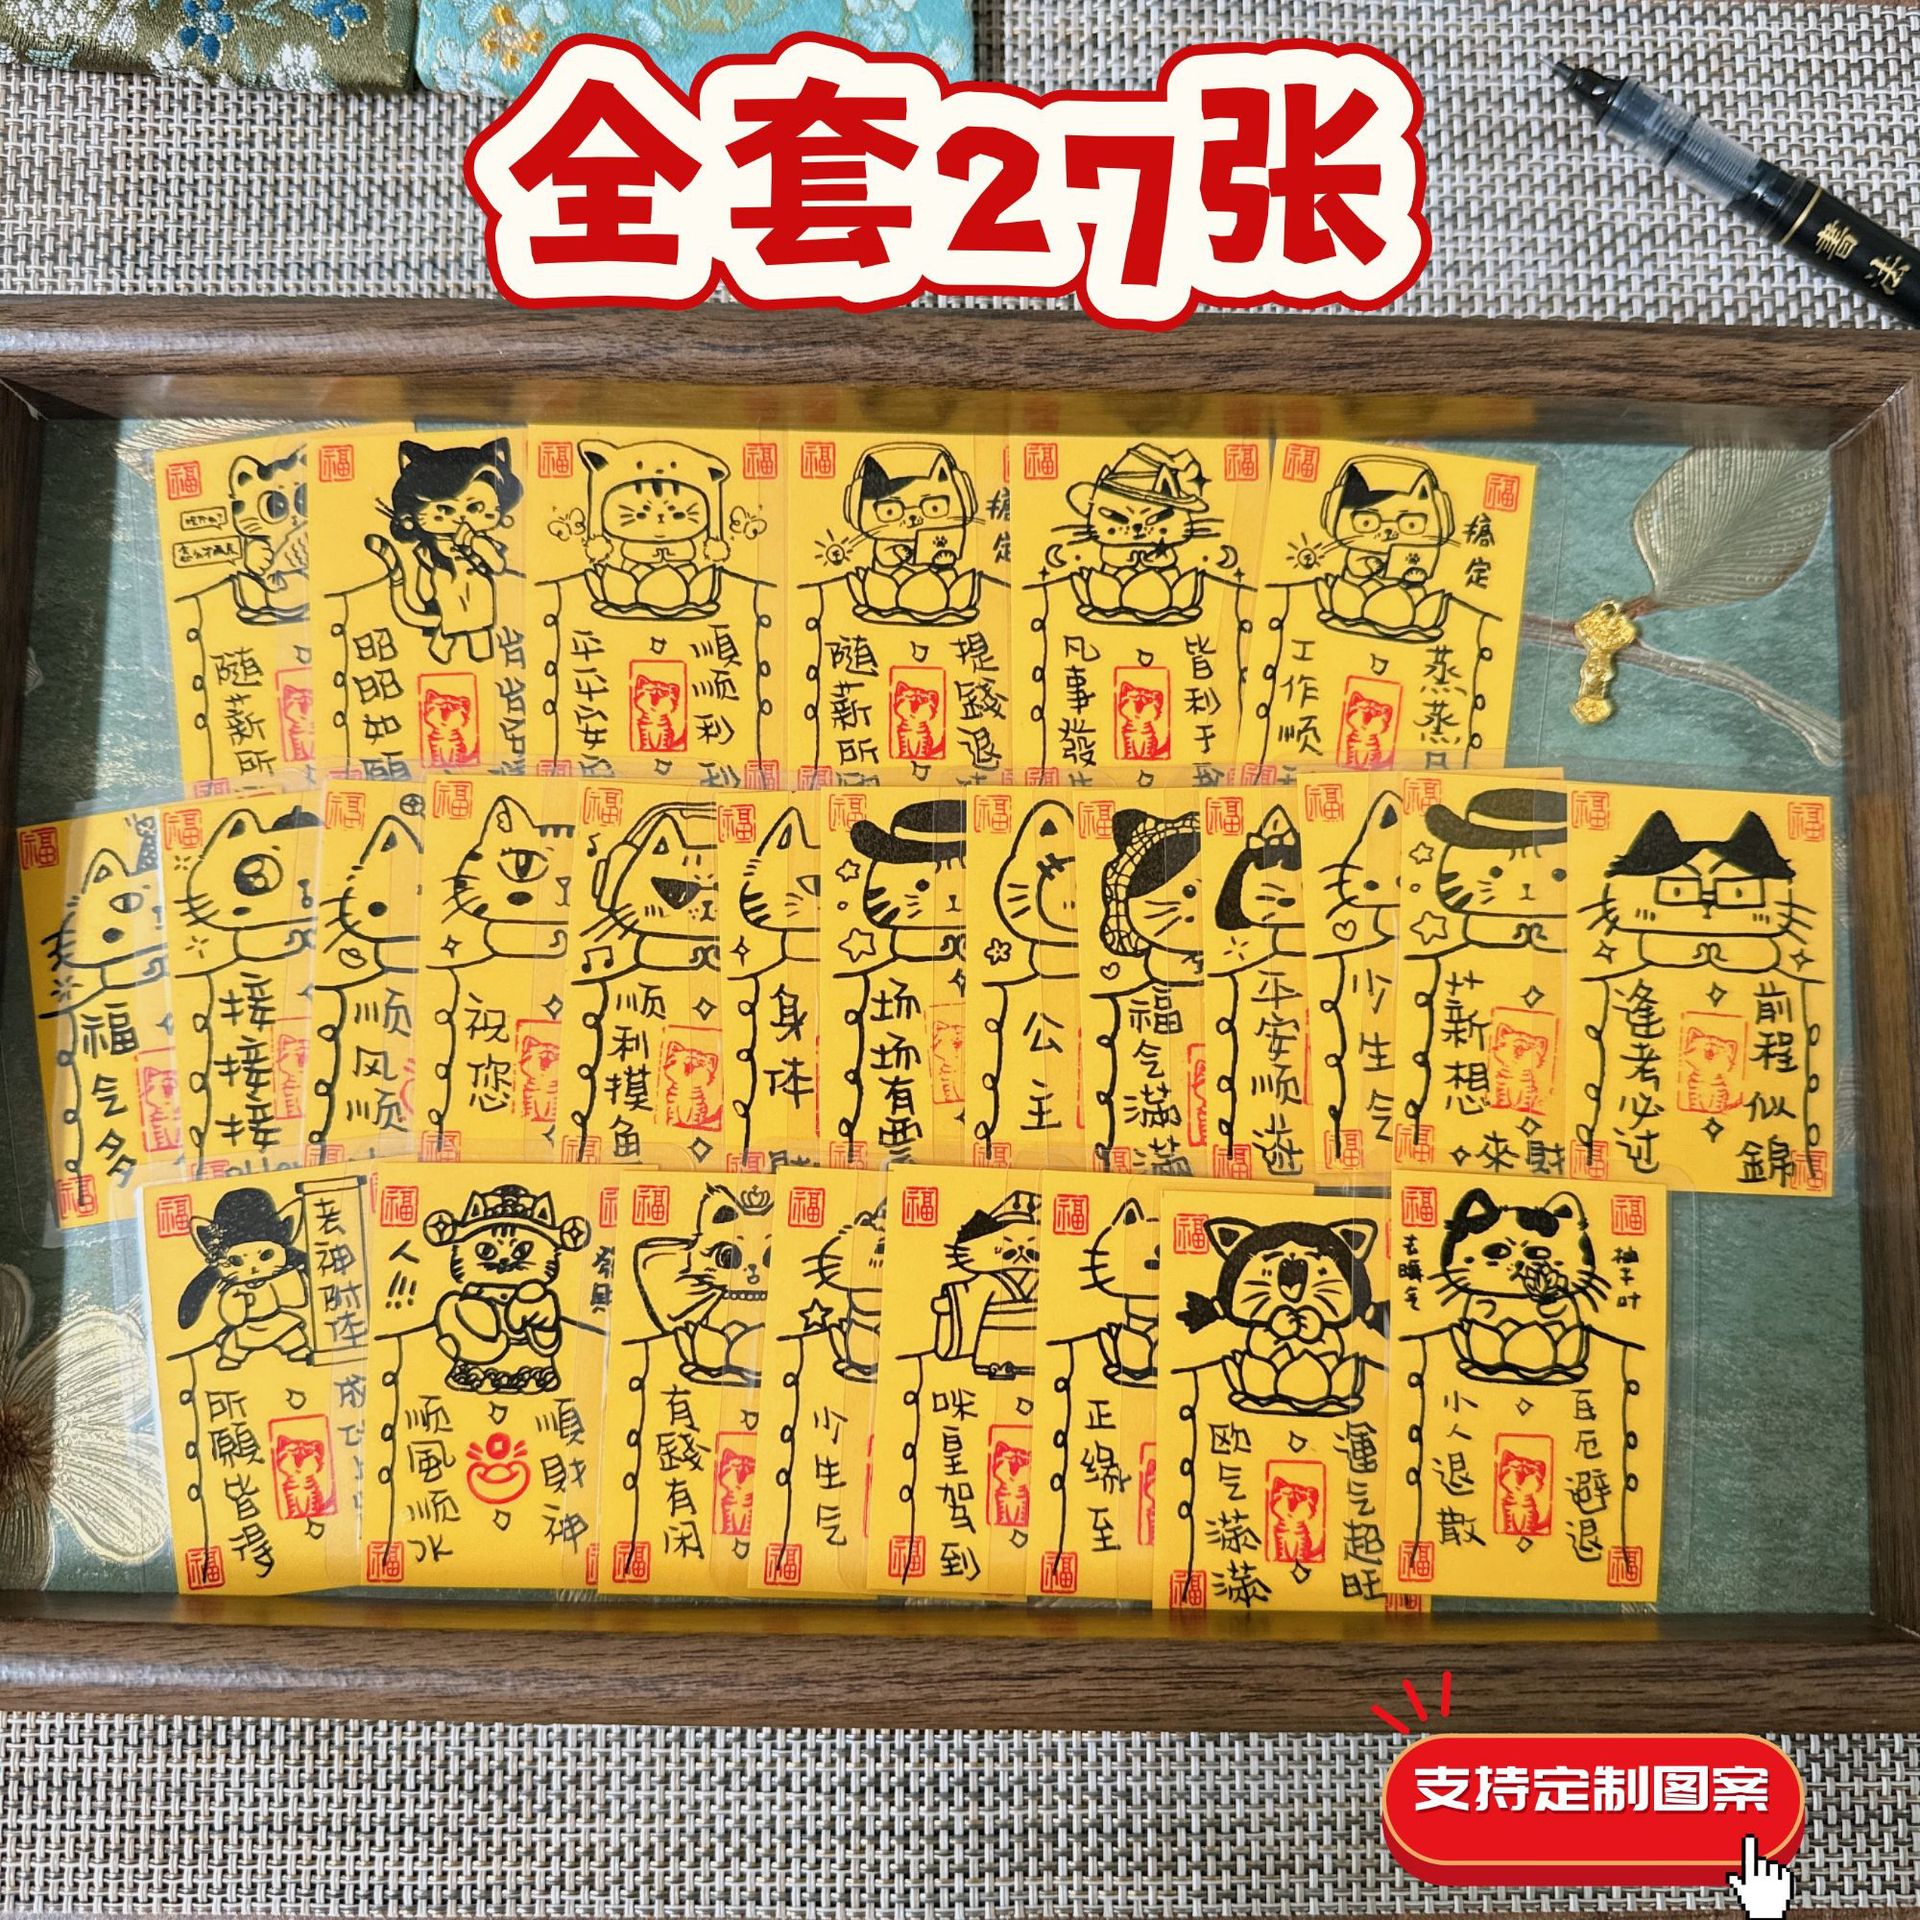 全套27张
書法
福
随薪所
福
昭昭如願
福
福
平平安安
順順利利
福
搞定
随薪所願
提錢退
福
福
凡事發生
皆利于我
福
福
搞定
工作顺
蒸蒸日
福
福气多
福
接接接
福
顺风顺
福
祝您
福
顺利摸鱼
福
身体
福
场场有票
福
公主
福
福气满满
福
平安顺遂
福
少生气
福
薪想
来財
福
福
逢考必过
前程似錦
福
老神附体
所願皆得
福
人!!!
顺風顺水
順財神
福
有錢有闲
福
少生气
福
咪皇驾到
福
正缘至
福
欧气满满
運气超旺
福
福
去晦气
柚子叶
小人退散
百厄避退
支持定制图案